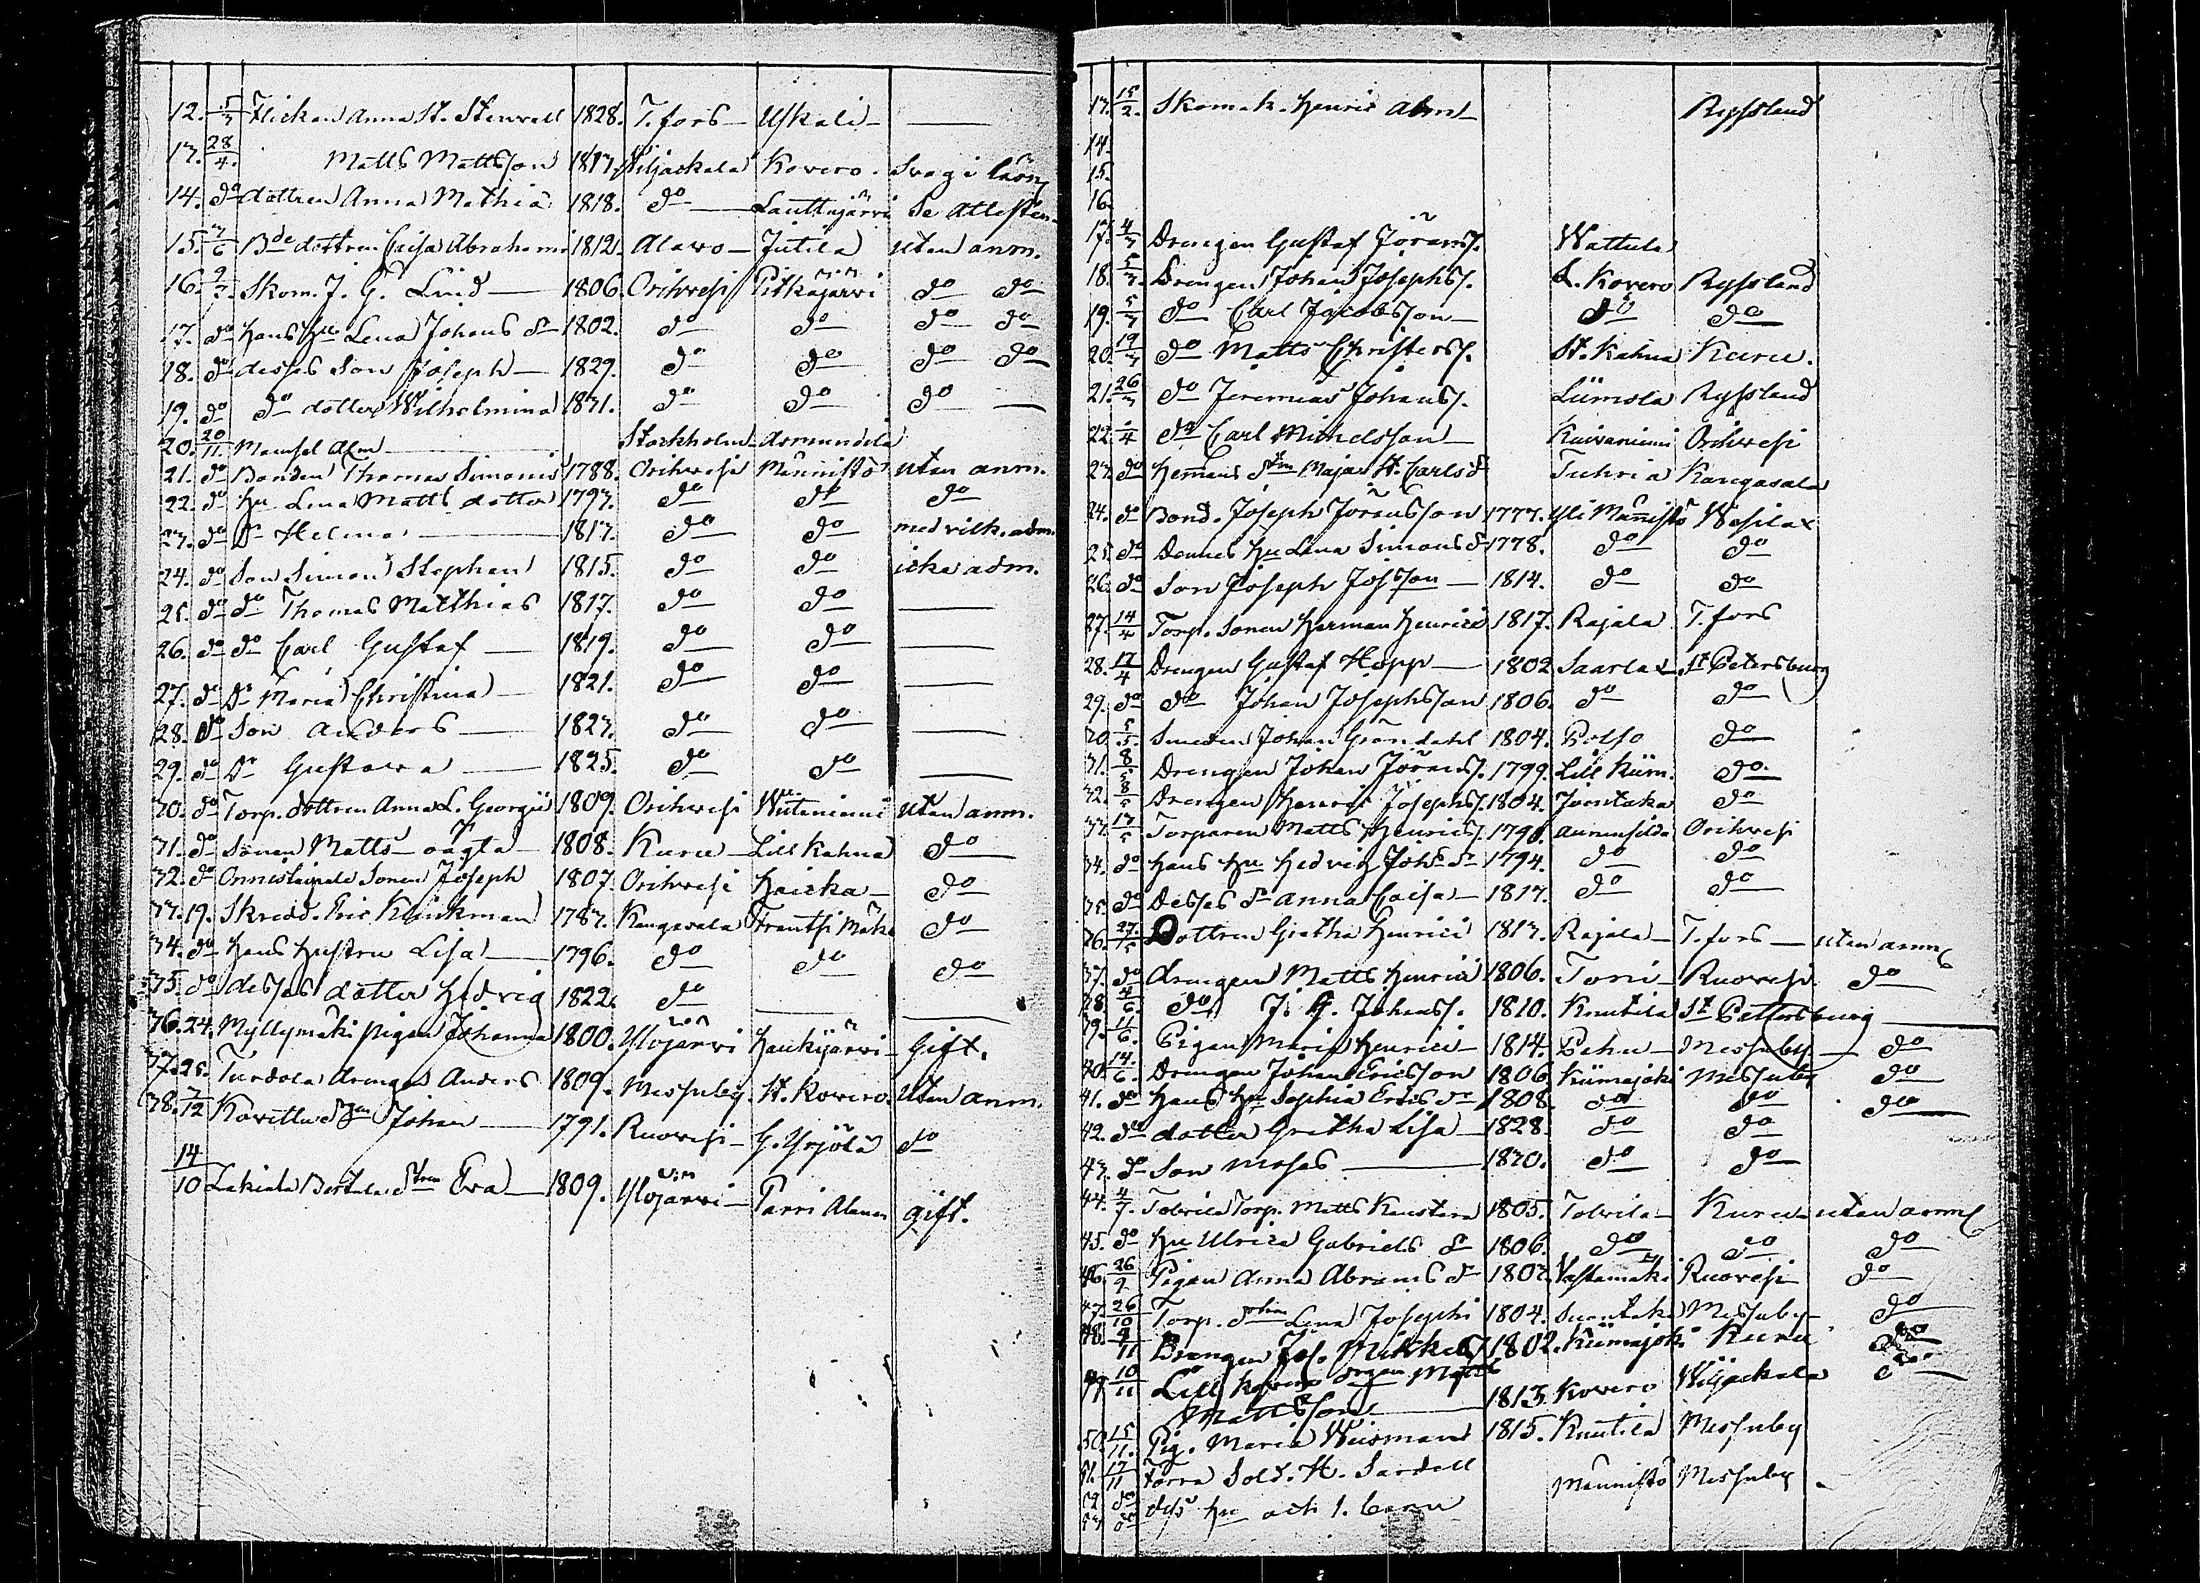 12. 5/3 Flickan Anna St. Stenvall 1828. T.fors Uskali —
13. 28/4. Matts Mattsson 1813. Wiljackala Kovero. Svag i läsn
14. do dottren Anna Mathiæ 1818. do Lauttajärvi Se attesten
15. 3/6 Bde dottren Caisa Abrahami 1812. Alavo Jutila utan anm.
16. 2/7. Skom. J. G. Lind 1806. Orihvesi Pitkäjärvi do do
17. do hans Hu Lena Johans dr 1802. do do do do
18. do desses Son Joseph 1829. do do do do
19. do do dotter Wilhelmina 1831. do do do —
20. 20/11. Mamsel Alm Stockholm
21. do Bonden Thomas Simonis 1788. Orihvesi Männistö utan anm.
22. do Hu Lena Matts dotter 1793. do do do
23. do Dr Helena 1813. do do med vilk. adm.
24. do Son Simon Stephan 1815. do do icke adm.
25. do do Thomas Matthias 1817. do do —
26. do do Carl Gustaf 1819. do do —
27. do Dr Maria Christina 1821. do do —
28. do Son Anders 1823. do do —
29. do Dr Gustava 1825. do do —
30. do Torp. dottren Anna L. Georgii 1809. Orihvesi utan anm.
31. do Sonen Matts 1808. Kuru Lill Kahna do
32. do Sonen Joseph 1807. Orihvesi Haicka do
33. 19. Skredd. Eric Klinkman 1783. Kangasala Frantsi Mäki do
34. do hans hustru Lisa 1796. do do do
35. do desses dotter Hedvig 1822. do — —
36. 24. Myllymäki pigan Johanna 1800. Ylöjärvi Haukijärvi Gift.
37. 25. Turdola drengen Anders 1809. Messuby St. Kovero. Utan anm.
38. 7/12 Johan 1791. Ruovesi G. Yrjölä do
14/10 Lakiala Eva 1809. Ylöjärvi Parri gift.
13. 15/2. Skomak. Henric Ahrn Ryssland
14.
15.
16.
17. 4/3 Drengen Gustaf Jöranss. Wattula
18. 5/3. Drengen Johan Josephs. L. Kovero Ryssland
19. 5/3 do Carl Jacobsson do do
20. 19/3 do Matts Christerss. St. Kahna Kuru.
21. 26/3 do Jeremias Johanss. Liimola Ryssland
22. 1/4 do Carl Michelsson Kaivaniemi Orihvesi
23. do Maja St. Carlsd Tuhria Kangasala
24. do Bond. Joseph Joransson 1777. Yli Männistö Wesilax
25. do Dennes Hu Lena Simons dr 1778. do do
26. do Son Joseph Josson 1814. do do
27. 14/4 Torp. Sonen Herman Henrici 1817. Rajala T.fors
28. 17/4 Drengen Gustaf Hopp 1802 Saarlax St Petersburg
29. do do Johan Josephsson 1806. do do
30. 5/5. Smeden Johan Gröndahl 1804. Polso do
31. 8/5 Drengen Johan Jöranss. 1799. Lill Kiim. do
32. 8/5 Drengen Henric Josephs. 1804. Juontaka do
33. 13/5 Torparen Matts Henrics. 1790. Orihvesi
34. do hans Hu Hedvig Johs dr 1794. do do
35. do Desses dr Anna Caisa 1817. do do
36. 27/5 Dottren Gretha Henrici 1813. Rajala T.fors utan anm
37. do drengen Matts Henrici 1806. Toni Ruovesi do
38. 4/6. do J. G. Johanss. 1810. Knutila St Pettersburg —
39. 11/6. Pigan Maria Henrici 1814. Pehu Messuby do
40. 14/6. Drengen Johan Ericsson 1806. Kiimajoki Messuby do
41. do hans Hu Sophia Erics dr 1808. do do do
42. do dotter Gretha Lisa 1828. do do
43. do Son Moses 1830. do do
44. 4/7. Tolvila Torp. Matts 1805. Tolvila Kuru utan anm
45. do Hu Ulrica Gabriels dr 1806. do do do
46 26/9 Pigan Anna Abrams dr 1802. Vastamäki Ruovesi do
47. 26/10 Torp. Lena Josephi 1804. Messuby do
48. 9/11 Drengen Jos. Mickels 1802. Kiimajoki Kuru do
49 10/11 Lill Kovero drgen Matts
Mattsson 1813. Kovero Wiljackala do
50. 15/11. Pig. Maria Weisman 1815. Knutila Messuby
51. 17/11 förra Sold. H. Sardell Männistö Messuby
52 do dess Hu och 1. barn
53 do